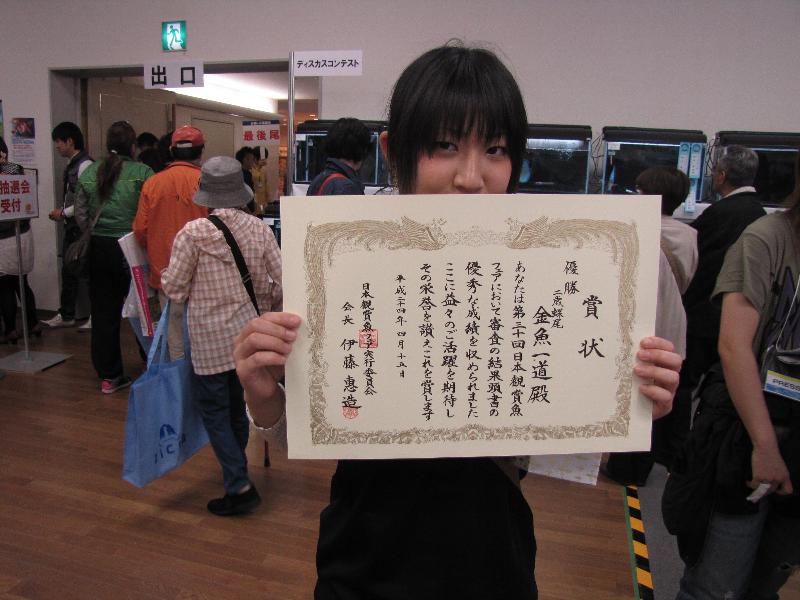 出口
ディスカスコンテスト
最後尾
抽選会
受付
賞状
優勝
三色蝶尾
金魚一道殿
あなたは第三十回日本観賞魚
フェアにおいて審査の結果頭書の
優秀な成績を収められました
ここに益々のご活躍を期待し
その栄誉を讃えこれを賞します
平成二十四年四月十五日
日本観賞魚フェア実行委員会
会長 伊藤惠造
PRESS